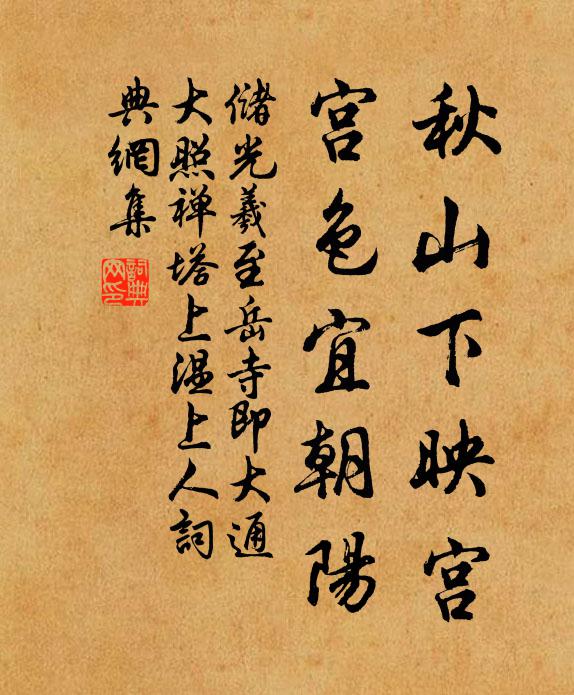 秋山下映宫
宫色宜朝陽
儲光羲至岳寺即大通
大照禅塔上温上人詞
典網集
詞典網印